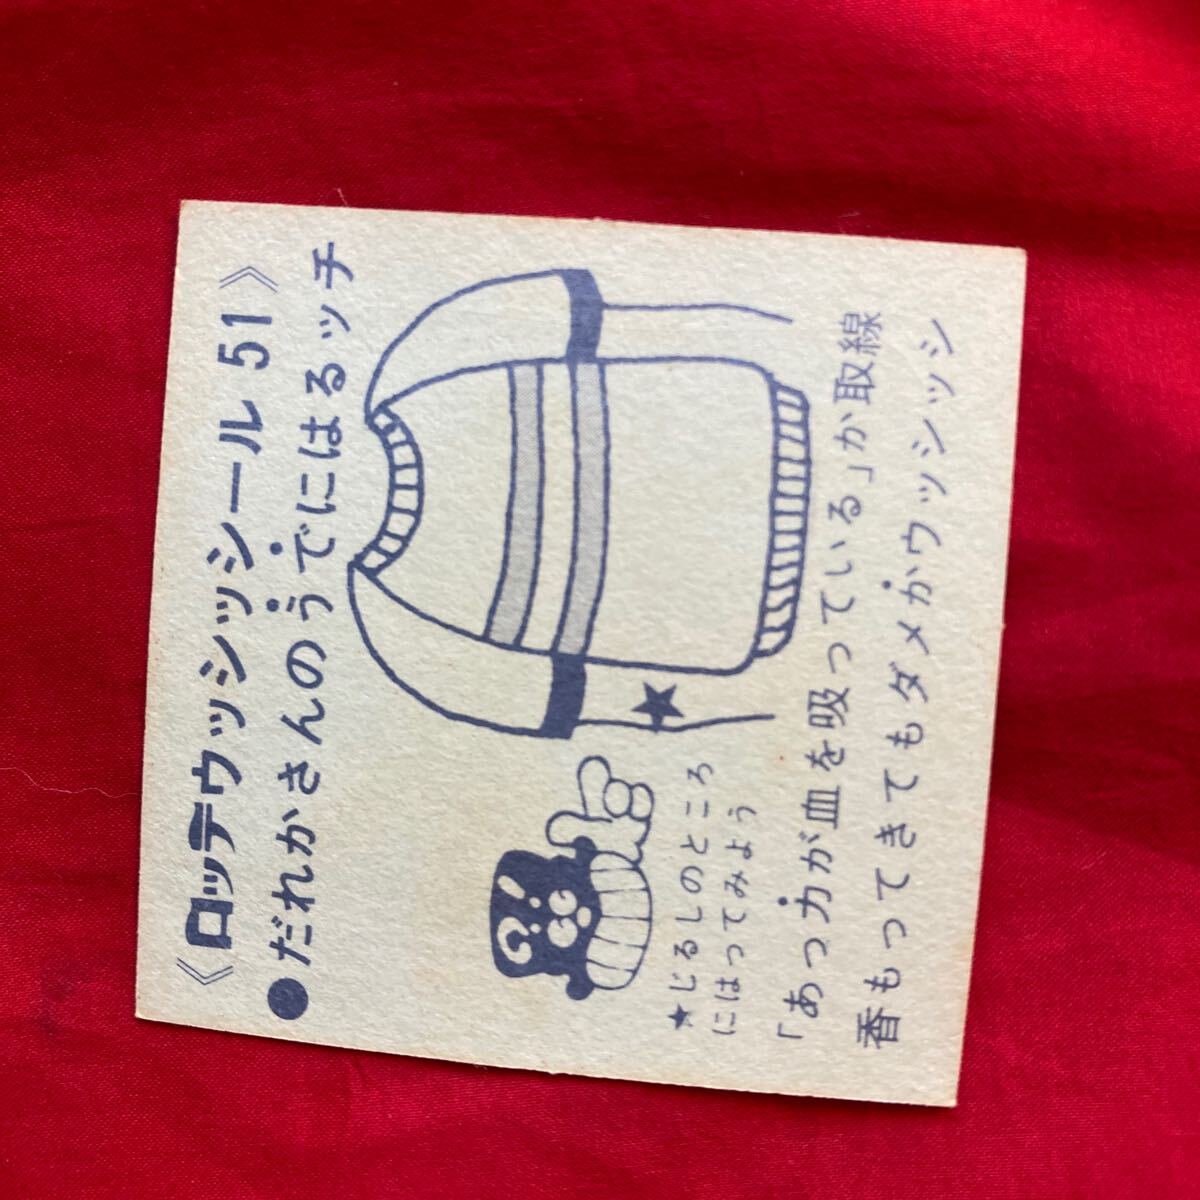 《ロッテウッシッシール 51》
●だれかさんのうでにはるッチ
?!
★じるしのところ
にはってみよう
「あっカが血を吸っている」か取線
香もってきてもダメかウッシッシ